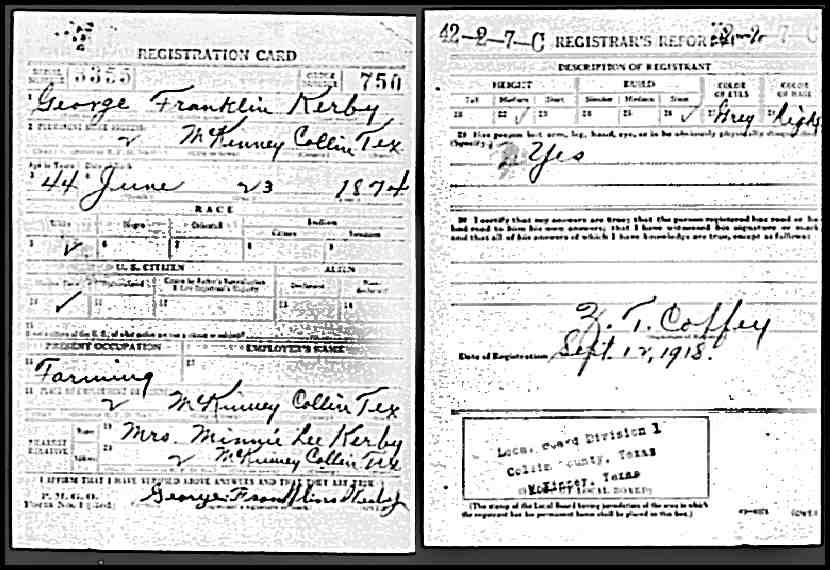 REGISTRATION CARD
SERIAL NUMBER 3355 ORDER NUMBER 750
1 George Franklin Kerby
2 PERMANENT HOME ADDRESS:
2 McKinney Collin Tex
Age in Years Date of Birth
3 44 4 June 23 1874
RACE
White Negro Oriental Indian
Citizen Noncitizen
5 ✓ 6 7 8 9
U. S. CITIZEN ALIEN
Declarant
10 ✓ 11 12 13 14
15
PRESENT OCCUPATION EMPLOYER'S NAME
16 Farming 17
18 PLACE OF EMPLOYMENT OR BUSINESS
2 McKinney Collin Tex
NEAREST RELATIVE Name 19 Mrs. Minnie Lee Kerby
Address 20 2 McKinney Collin Tex
I AFFIRM THAT I HAVE VERIFIED ABOVE ANSWERS AND THAT THEY ARE TRUE
P. M. G. O.
Form No. 1 (Red) George Franklin Kerby
42-2-7-C REGISTRAR'S REPORT
DESCRIPTION OF REGISTRANT
HEIGHT BUILD COLOR OF EYES COLOR OF HAIR
Tall Medium Short Slender Medium Stout
21 22 ✓ 23 24 25 26 ✓ 27 Grey
29 Has person lost arm, leg, hand, eye, or is he obviously physically
(Specify.) Yes
30 I certify that my answers are true; that the person registered has read or has
had read to him his own answers; that I have witnessed his signature or mark
and that all of his answers of which I have knowledge are true, except as follows:
Z. T. Coffey
Date of Registration Sept. 12, 1918.
Local Board Division 1
Collin County, Texas
McKinney, Texas
(STAMP OF LOCAL BOARD)
(The stamp of the Local Board having jurisdiction of the area in which
the registrant has his permanent home shall be placed in this box.)